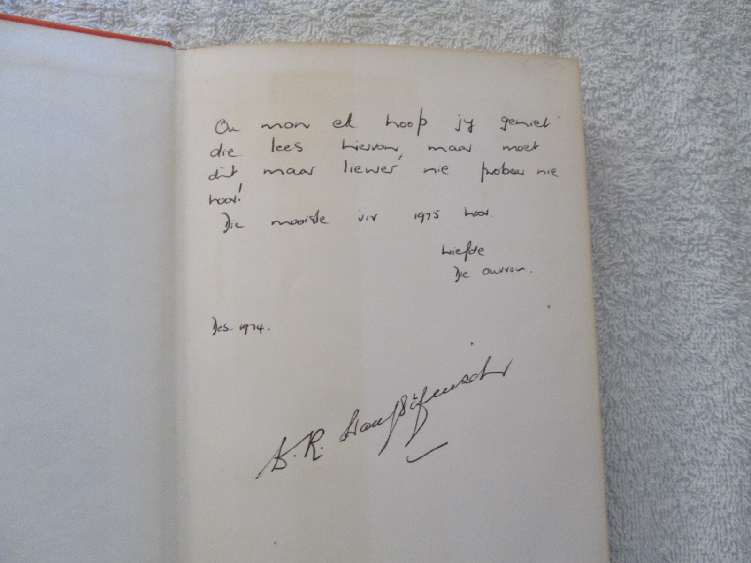 Ou man ek hoop jy geniet
die lees hiervan, maar moet
dit maar liewer nie probeer nie
hoor!
Die mooiste vir 1975 hoor.
Liefde
Die ouvrou.
Des. 1974.
S. R.